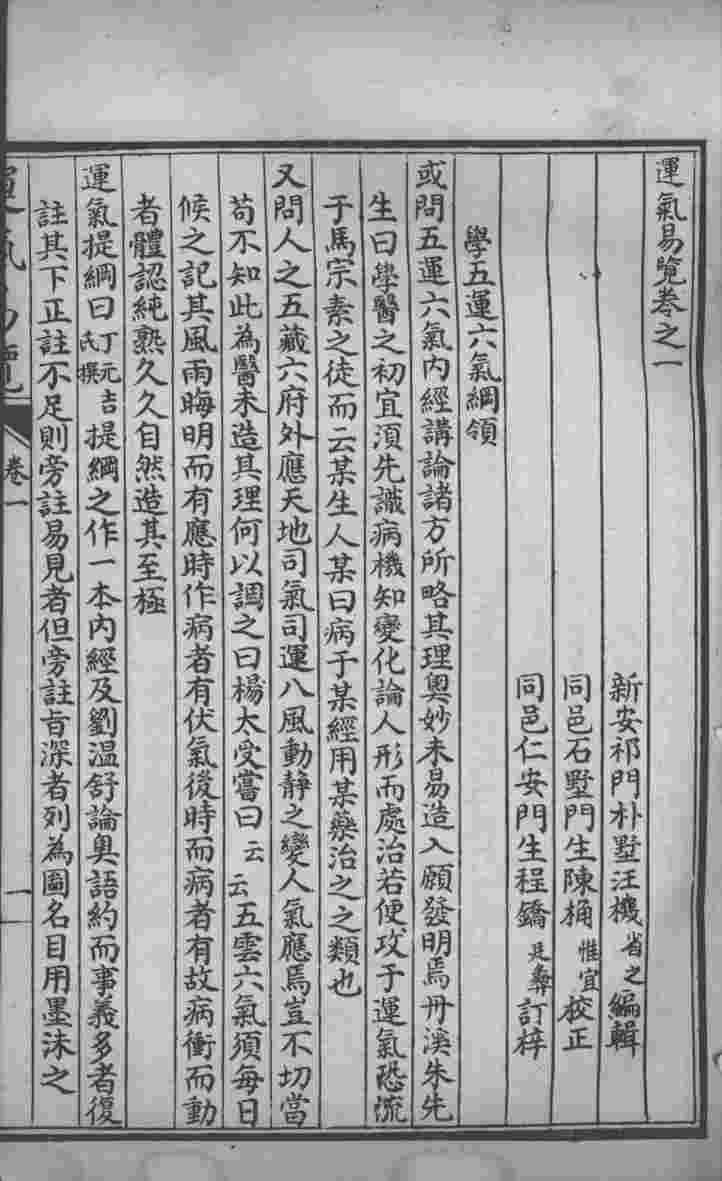 運氣易覽卷之一
新安祁門朴墅汪機省之編輯
同邑石墅門生陳桷惟宜校正
同邑仁安門生程鐈廷彝訂梓
學五運六氣綱領
或問五運六氣內經講論諸方所略其理奧妙未易造入願發明焉丹溪朱先
生曰學醫之初宜須先識病機知變化論人形而處治若便攻于運氣恐流
于馬宗素之徒而云某生人某日病于某經用某藥治之之類也
又問人之五藏六府外應天地司氣司運八風動靜之變人氣應焉豈不切當
苟不知此為醫未造其理何以調之曰楊太受嘗曰云云五雲六氣須每日
候之記其風雨晦明而有應時作病者有伏氣後時而病者有故病衝而動
者體認純熟久久自然造其至極
運氣提綱曰丁元吉氏撰提綱之作一本內經及劉溫舒論奧語約而事義多者復
註其下正註不足則旁註易見者但旁註旨深者列為圖名目用墨沫之
運氣易覽 卷一 一